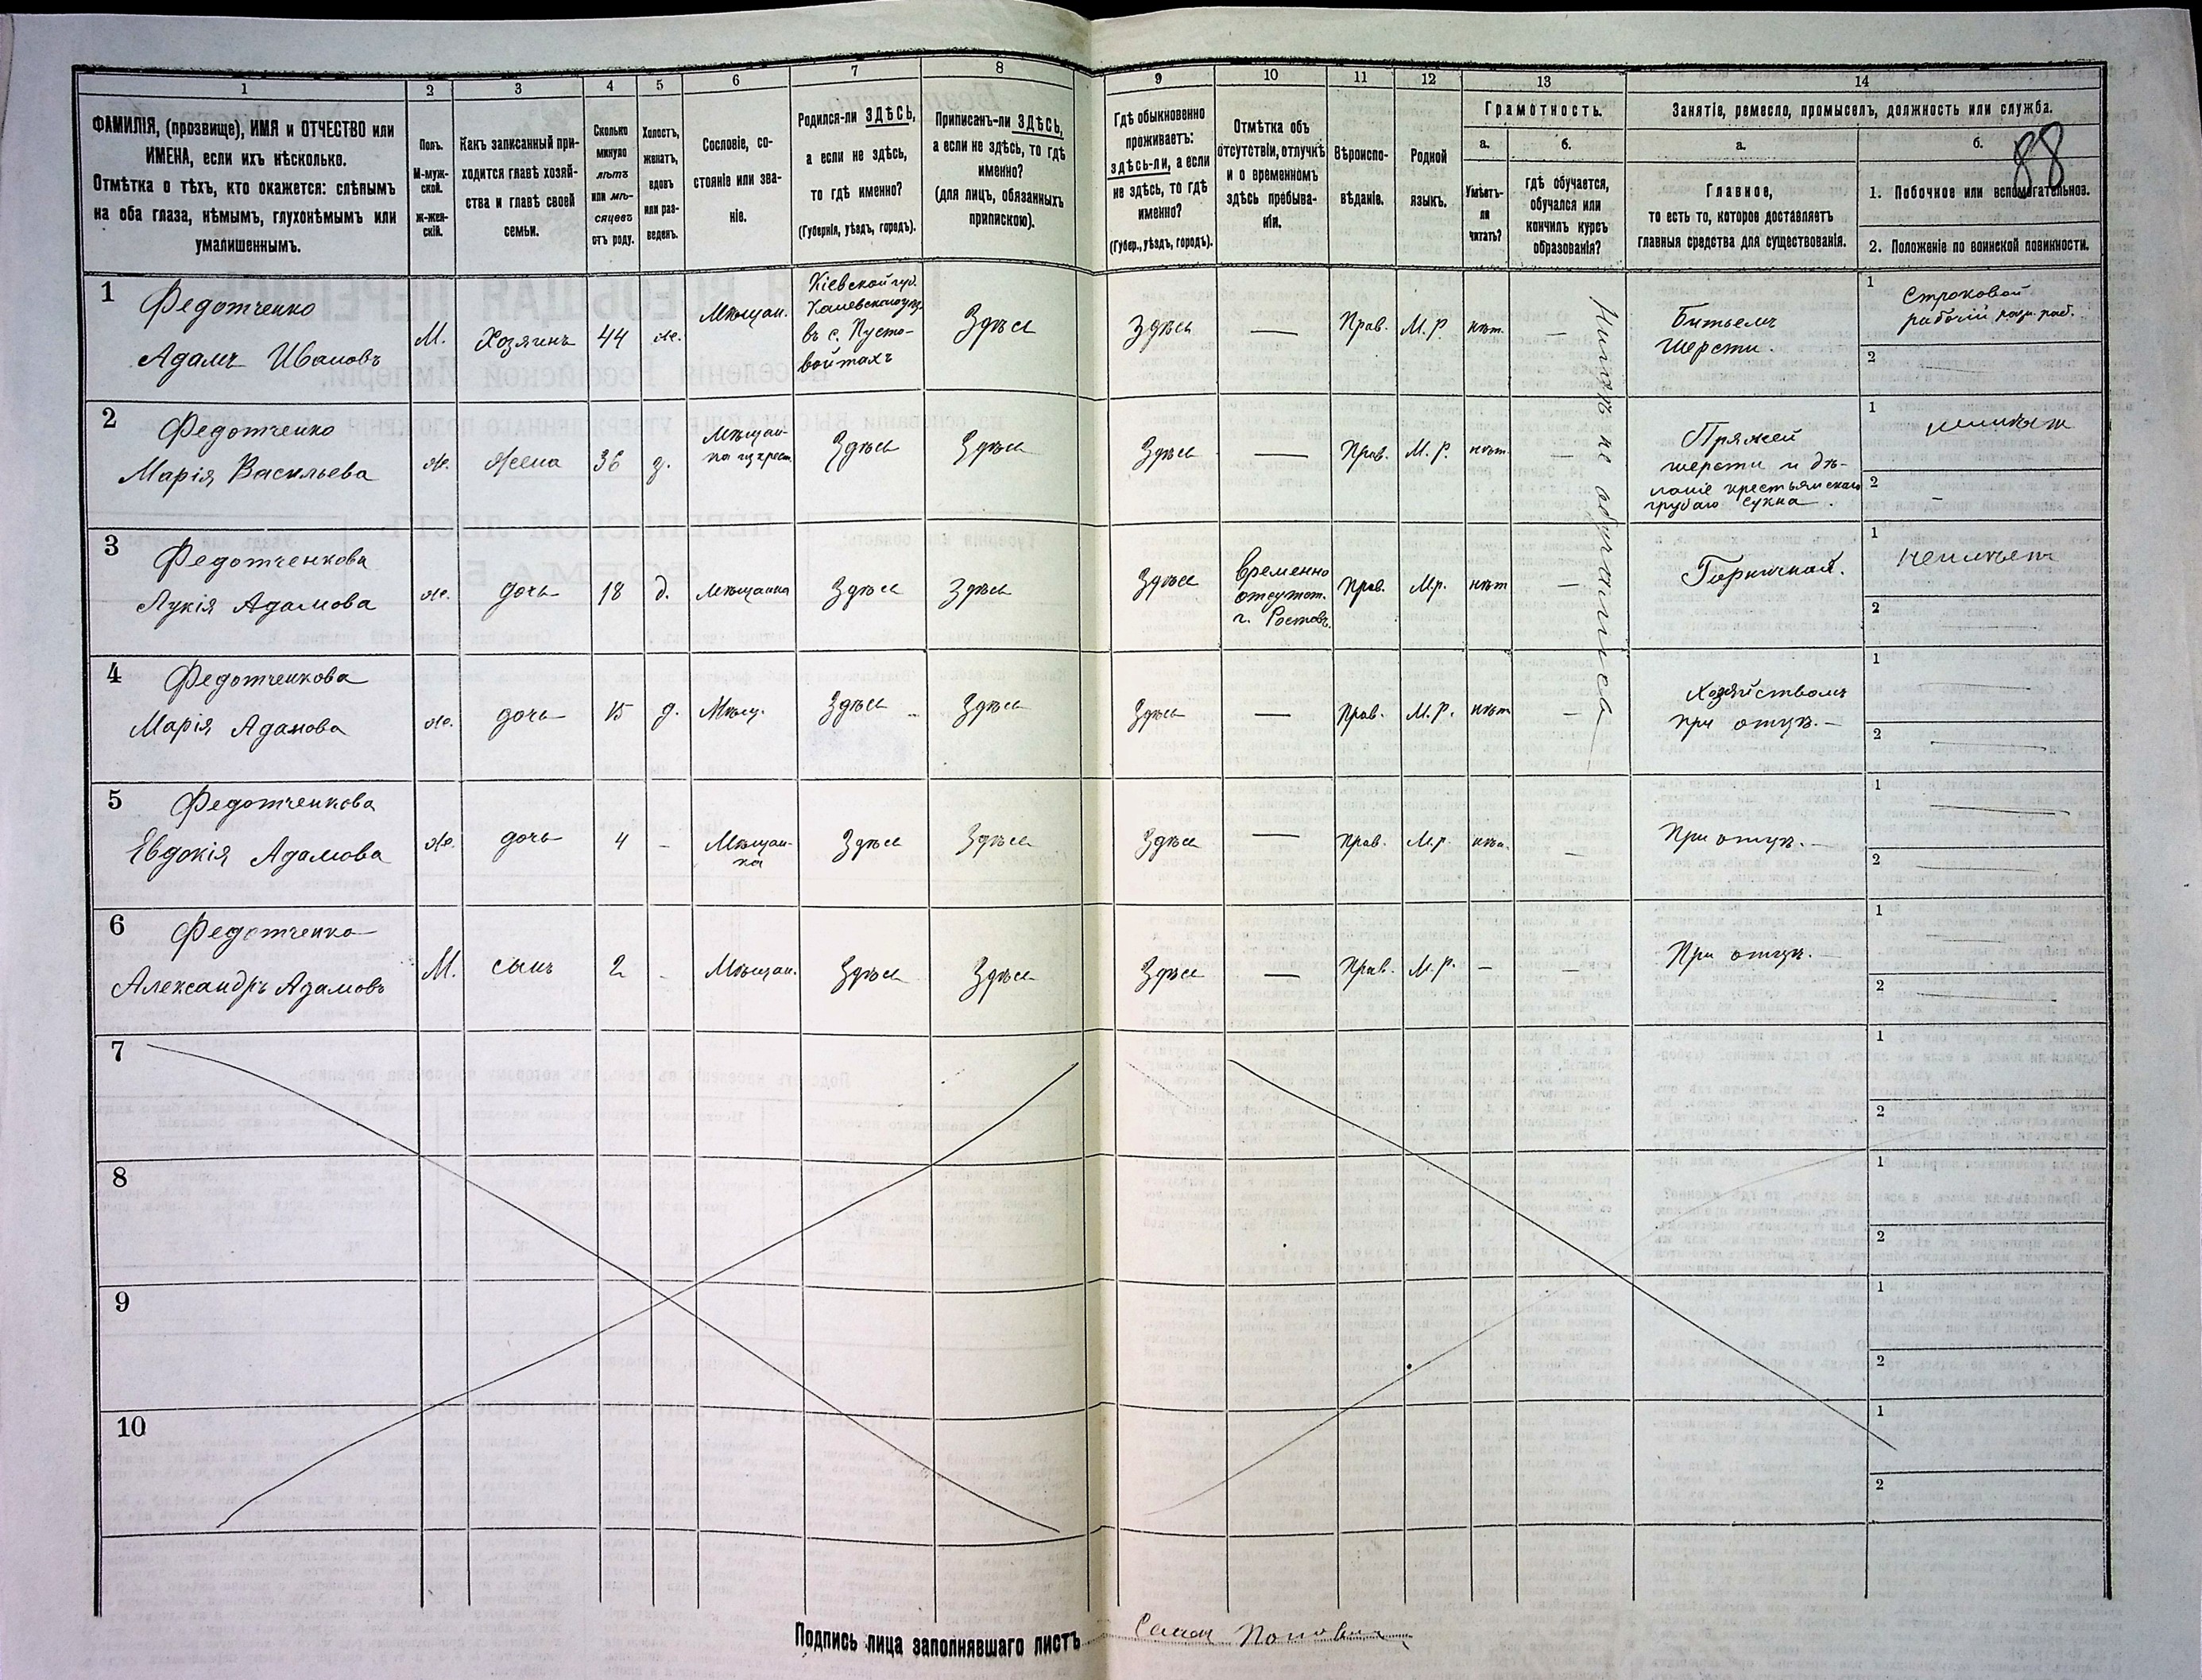 1
2
3
4
5
6
7
8
9
10
11
12
13
14
ФАМИЛІЯ, (прозвище), ИМЯ и ОТЧЕСТВО или
ИМЕНА, если ихъ нѣсколько.
Отмѣтка о тѣхъ, кто окажется: слѣпымъ
на оба глаза, нѣмымъ, глухонѣмымъ или
умалишеннымъ.
Полъ.
М-муж-
ской.
ж-жен-
скій.
Какъ записанный при-
ходится главѣ хозяй-
ства и главѣ своей
семьи.
Сколько
минуло
лѣтъ
или мѣ-
сяцевъ
отъ роду.
Холостъ,
женатъ,
вдовъ
или раз-
веденъ.
Сословіе, со-
стояніе или зва-
ніе.
Родился-ли ЗДѢСЬ,
а если не здѣсь,
то гдѣ именно?
(Губернія, уѣздъ, городъ).
Приписанъ-ли ЗДѢСЬ,
а если не здѣсь, то гдѣ
именно?
(для лицъ, обязанныхъ
припискою).
Гдѣ обыкновенно
проживаетъ:
здѣсь-ли, а если
не здѣсь, то гдѣ
именно?
(Губер., уѣздъ, городъ).
Отмѣтка объ
отсутствіи, отлучкѣ
и о временномъ
здѣсь пребыва-
ніи.
Вѣроиспо-
вѣданіе.
Родной
языкъ.
Грамотность.
а.
б.
Умѣетъ-
ли
читать?
гдѣ обучается,
обучался или
кончилъ курсъ
образованія?
Занятіе, ремесло, промыселъ, должность или служба.
а.
б.
88
Главное,
то есть то, которое доставляетъ
главныя средства для существованія.
1. Побочное или вспомогательное.
2. Положеніе по воинской повинности.
1
Федотченко
Адамъ Ивановъ
М.
Хозяинъ
44
ж.
Мѣщан.
Кіевской губ.
въ с. Пусто-
войтахъ
Здѣсь
Здѣсь
—
Прав.
М.Р.
нѣт.
—
Битьемъ
Шерсти.
1
рабочій
2
2
Федотченко
Марія Васильева
ж.
Жена
36
з.
Мѣщан-
ка из крест.
Здѣсь
Здѣсь
Здѣсь
—
Прав.
М.Р.
нѣт.
—
Пряжей
шерсти и дѣ-
ланіе крестьянскаго
грубаго сукна.
1
неимѣет
2
-
3
Федотченкова
Лукія Адамова
ж.
дочь
18
д.
Мѣщанка
Здѣсь
Здѣсь
Здѣсь
Временно
отсутст.
г. Ростовъ.
Прав.
М.р.
нѣт
—
Горничная.
1
неимѣет
2
4
Федотченкова
Марія Адамова
ж.
дочь
15
д.
Мѣщ.
Здѣсь
Здѣсь
Здѣсь
—
Прав.
М.Р.
нѣт
—
Хозяйствомъ
при отцѣ.—
1
2
5
Федотченкова
Евдокія Адамова
ж.
дочь
4
-
Мѣщан-
ка
Здѣсь
Здѣсь
Здѣсь
—
Прав.
М.р.
нѣт.
—
При отцѣ.—
1
2
6
Федотченко
Александръ Адамовъ
М.
сынъ
2
-
Мѣщан.
Здѣсь
Здѣсь
Здѣсь
—
Прав.
М.Р.
—
—
При отцѣ.—
1
2
Нигдѣ не обучались
7
1
2
8
1
2
9
1
2
10
1
2
Подпись лица заполнявшаго листъ